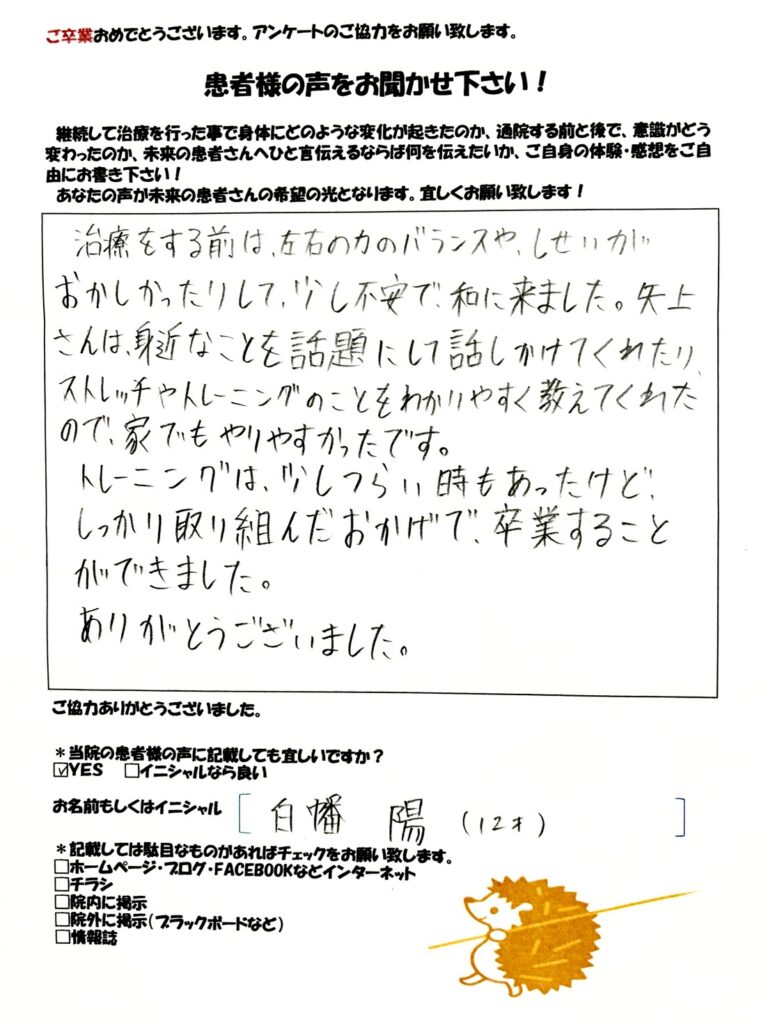 ご卒業おめでとうございます。アンケートのご協力をお願い致します。
患者様の声をお聞かせ下さい！
継続して治療を行った事で身体にどのような変化が起きたのか、通院する前と後で、意識がどう
変わったのか、未来の患者さんへひと言伝えるならば何を伝えたいか、ご自身の体験・感想をご自
由にお書き下さい！
あなたの声が未来の患者さんの希望の光となります。宜しくお願い致します！
治療をする前は、左右の力のバランスや、しせいが
おかしかったりして、少し不安で、和に来ました。矢上
さんは、身近なことを話題にして話しかけてくれたり、
ストレッチやトレーニングのことをわかりやすく教えてくれた
ので、家でもやりやすかったです。
トレーニングは、少しつらい時もあったけど、
しっかり取り組んだおかげで、卒業すること
ができました。
ありがとうございました。
ご協力ありがとうございました。
＊当院の患者様の声に記載しても宜しいですか？
☑YES □イニシャルなら良い
お名前もしくはイニシャル [ 白幡 陽 (12才) ]
＊記載しては駄目なものがあればチェックをお願い致します。
□ホームページ・ブログ・FACEBOOKなどインターネット
□チラシ
□院内に掲示
□院外に掲示（ブラックボードなど）
□情報誌